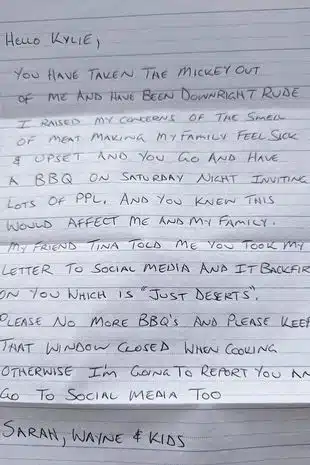 HELLO KYLIE,
YOU HAVE TAKEN THE MICKEY OUT
OF ME AND HAVE BEEN DOWNRIGHT RUDE
I RAISED MY CONCERNS OF THE SMELL
OF MEAT MAKING MY FAMILY FEEL SICK
& UPSET AND YOU GO AND HAVE
A BBQ ON SATURDAY NIGHT INVITING
LOTS OF PPL. AND YOU KNEW THIS
WOULD AFFECT ME AND MY FAMILY.
MY FRIEND TINA TOLD ME YOU TOOK MY
LETTER TO SOCIAL MEDIA AND IT BACKFIR
ON YOU WHICH IS "JUST DESERTS".
PLEASE NO MORE BBQ'S AND PLEASE KEEP
THAT WINDOW CLOSED WHEN COOKING
OTHERWISE I'M GOING TO REPORT YOU AN
GO TO SOCIAL MEDIA TOO
SARAH, WAYNE & KIDS